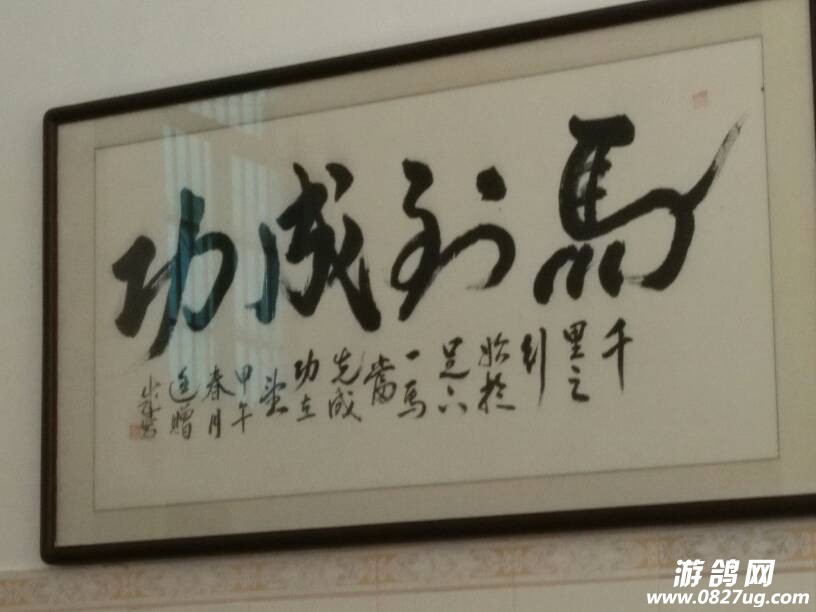 馬到成功
千
里之
行
始於
足下
一馬
當
先成
功在
望
甲午
春月
遥贈
游鸽网
www.0827ug.com